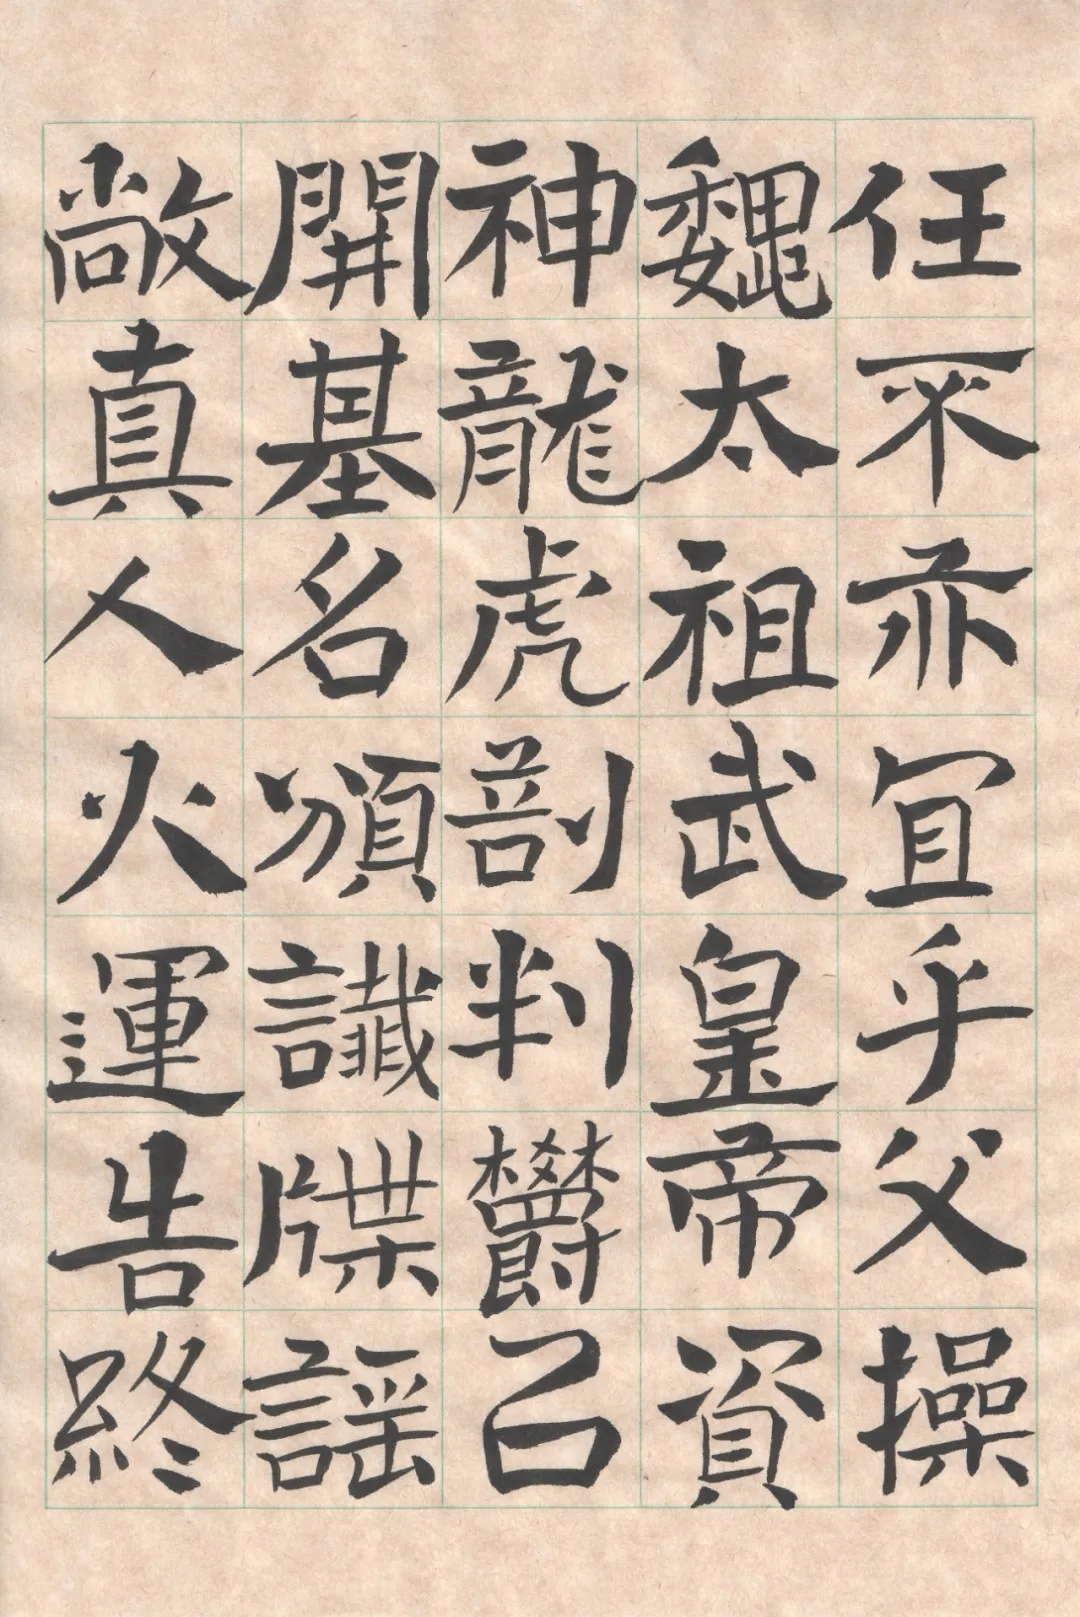 任不亦冝乎父操
魏太祖武皇帝資
神龍虎剖判欝己
開基名頒讖牒謡
敞真人火運告終